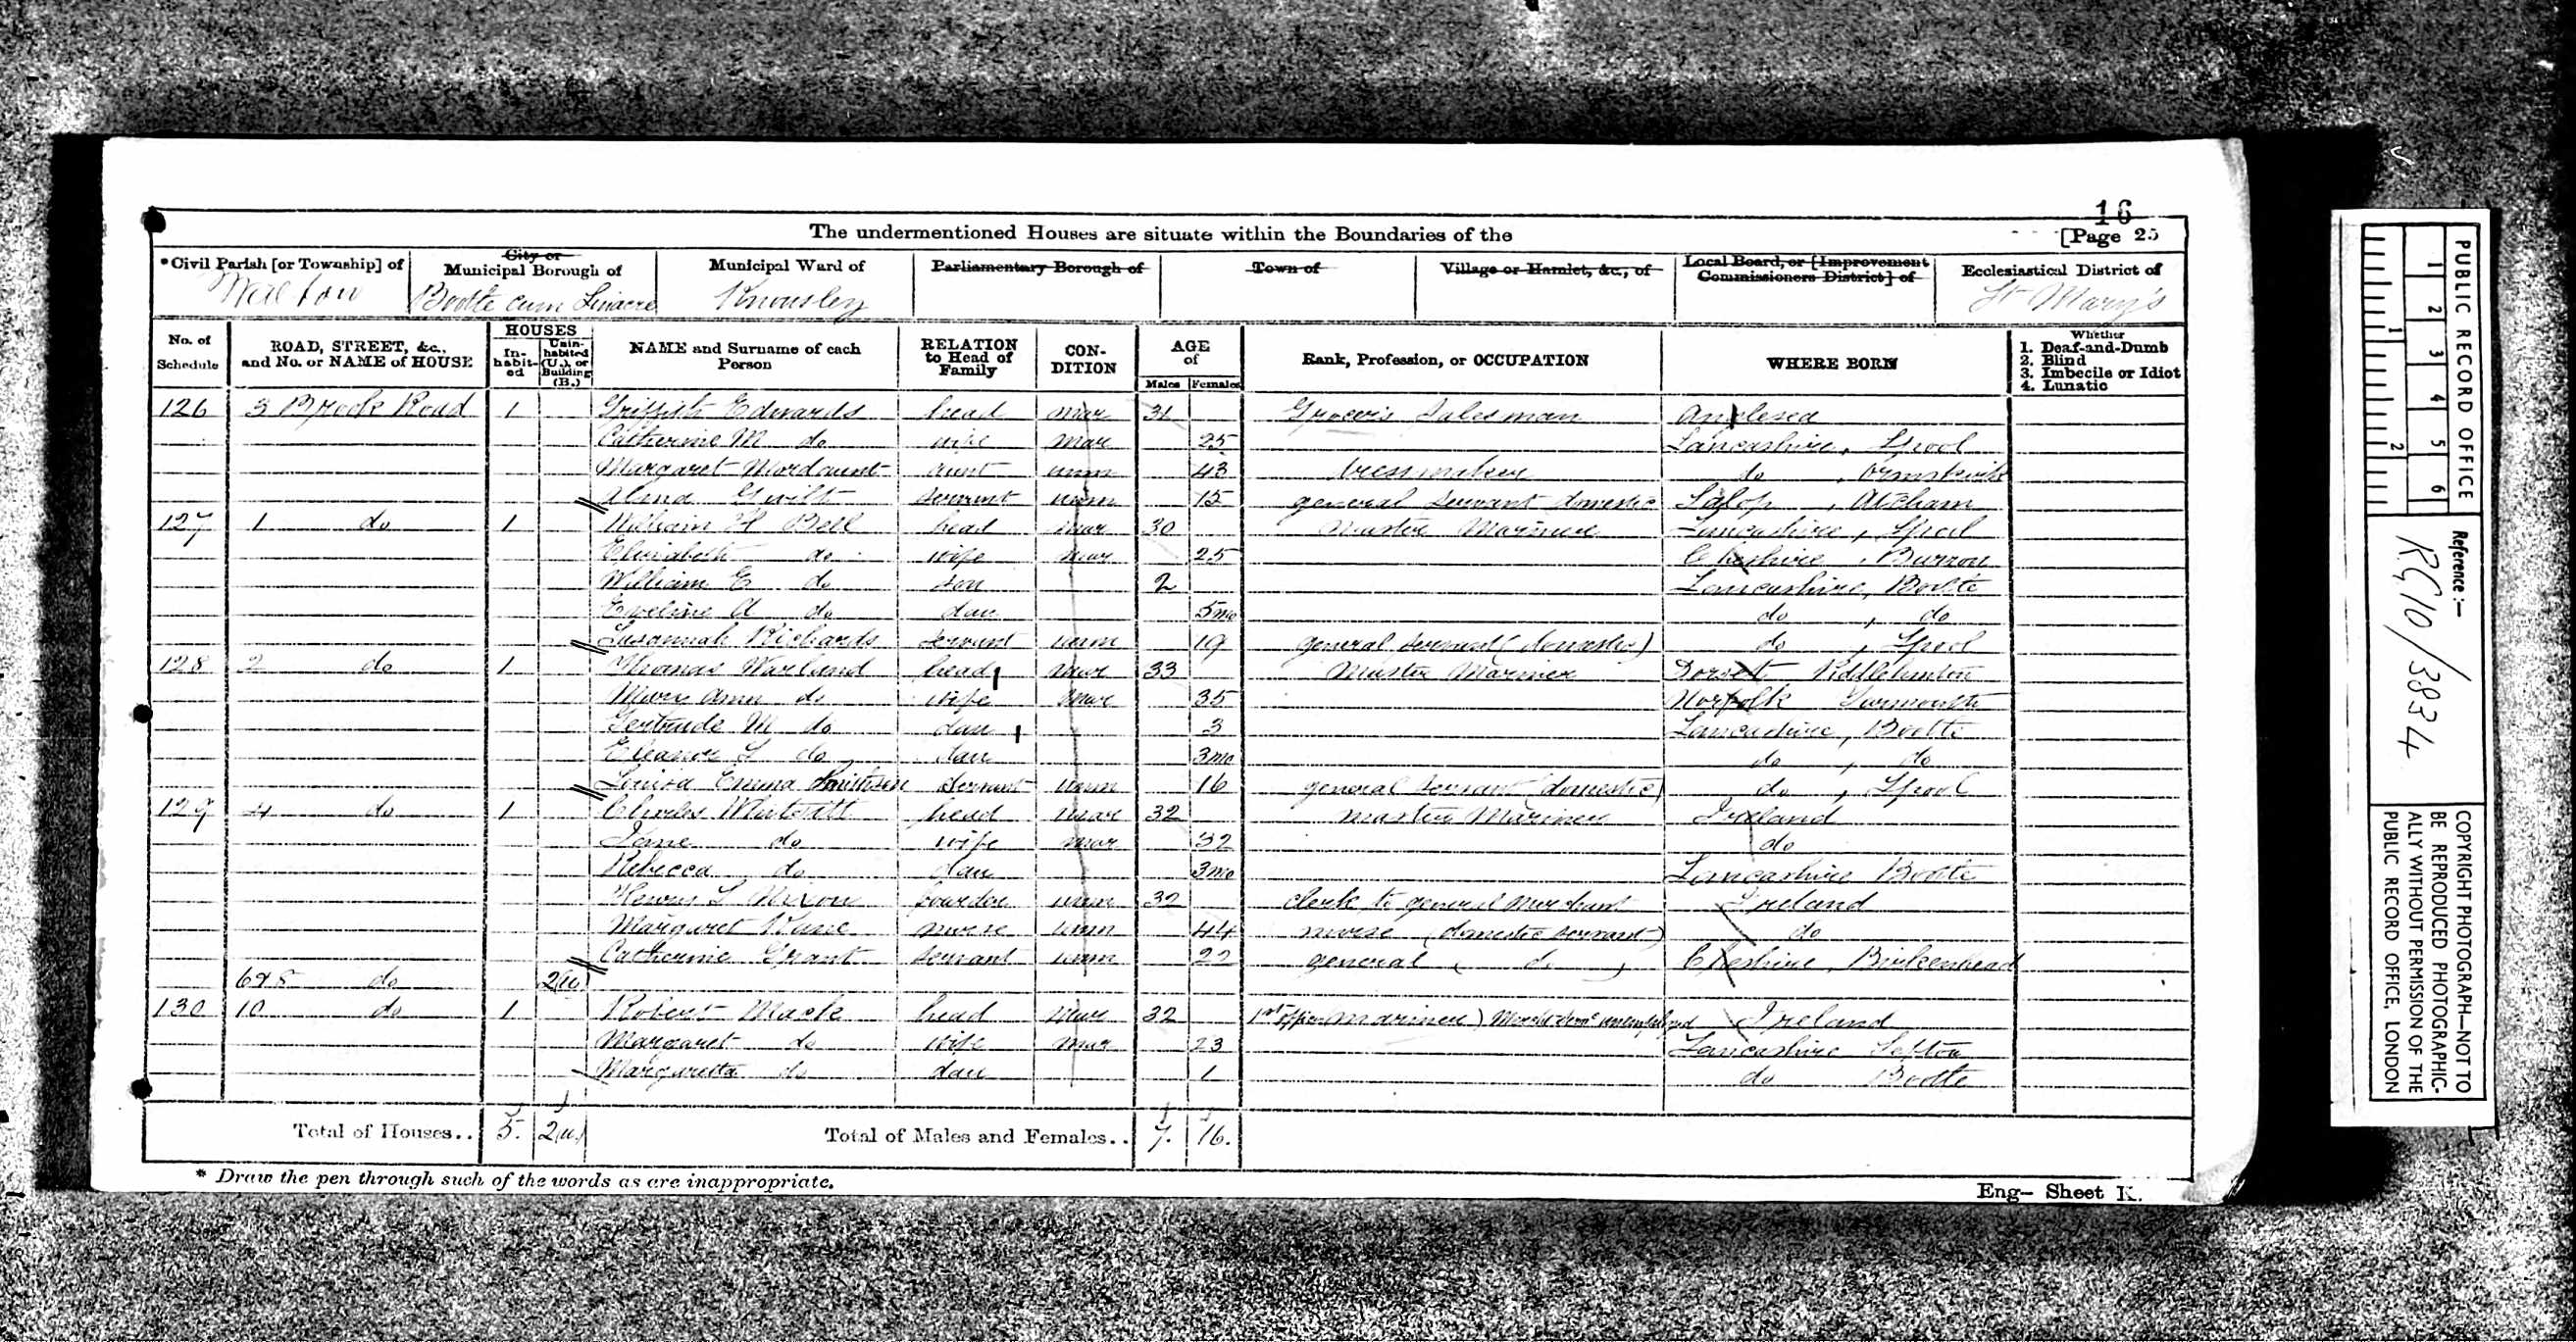 16
The undermentioned Houses are situate within the Boundaries of the [Page 25
*Civil Parish [or Township] of City or Municipal Borough of Municipal Ward of Parliamentary Borough of Town of Village or Hamlet, &c., of Local Board, or [Improvement Commissioners District] of Ecclesiastical District of
Walton Bootle cum Linacre Knowsley St Mary's
No. of Schedule ROAD, STREET, &c., and No. or NAME of HOUSE HOUSES Inhabited Uninhabited (U.), or Building (B.) NAME and Surname of each Person RELATION to Head of Family CONDITION AGE of Males Females Rank, Profession, or OCCUPATION WHERE BORN Whether 1. Deaf-and-Dumb 2. Blind 3. Imbecile or Idiot 4. Lunatic
126 3 Brook Road 1 Griffith Edwards head mar 31 Grocer's Salesman Anglesea
Catherine M do wife mar 25 Lancashire, Lpool
Margaret Mordaunt aunt unm 43 Dressmaker do, Ormskirk
Alma Gwilt servant unm 15 general servant domestic Salop, Atcham
127 1 do 1 William H Bell head mar 30 Master Mariner Lancashire, Lpool
Elizabeth do wife mar 25 Cheshire,
William E do son 2 Lancashire, Bootle
Eveline A do dau 5mo do, do
Susannah Richards servant unm 19 general servant (domestic) do, Lpool
128 2 do 1 Thomas Warland head mar 33 Master Mariner Dorset
Mary Ann do wife mar 35 Norfolk Yarmouth
Gertrude M do dau 3 Lancashire, Bootle
Eleanor do dau 3mo do, do
Louisa Emma Smithson servant unm 16 general servant (domestic) do, Lpool
129 4 do 1 Charles head mar 32 Master Mariner Ireland
Jane do wife mar 32 do
Rebecca do dau 3mo Lancashire Bootle
Henry S Nixon boarder unm 32 clerk to general merchant Ireland
Margaret Kane nurse unm 44 nurse (domestic servant) do
Catherine Grant servant unm 22 general ( do ) Cheshire, Birkenhead
6 & 8 do 2(u)
130 10 do 1 Robert Mack head mar 32 1st Officer (Mariner) unemployed Ireland
Margaret do wife mar 23 Lancashire Sefton
Margaretta do dau 1 do Bootle
Total of Houses.. 5. 2(u) Total of Males and Females.. 7. 16.
* Draw the pen through such of the words as are inappropriate.
Eng- Sheet K.
PUBLIC RECORD OFFICE
1 2 3 4 5 6
1 2
Reference :—
RG10/3834
COPYRIGHT PHOTOGRAPH—NOT TO
BE REPRODUCED PHOTOGRAPHIC-
ALLY WITHOUT PERMISSION OF THE
PUBLIC RECORD OFFICE, LONDON